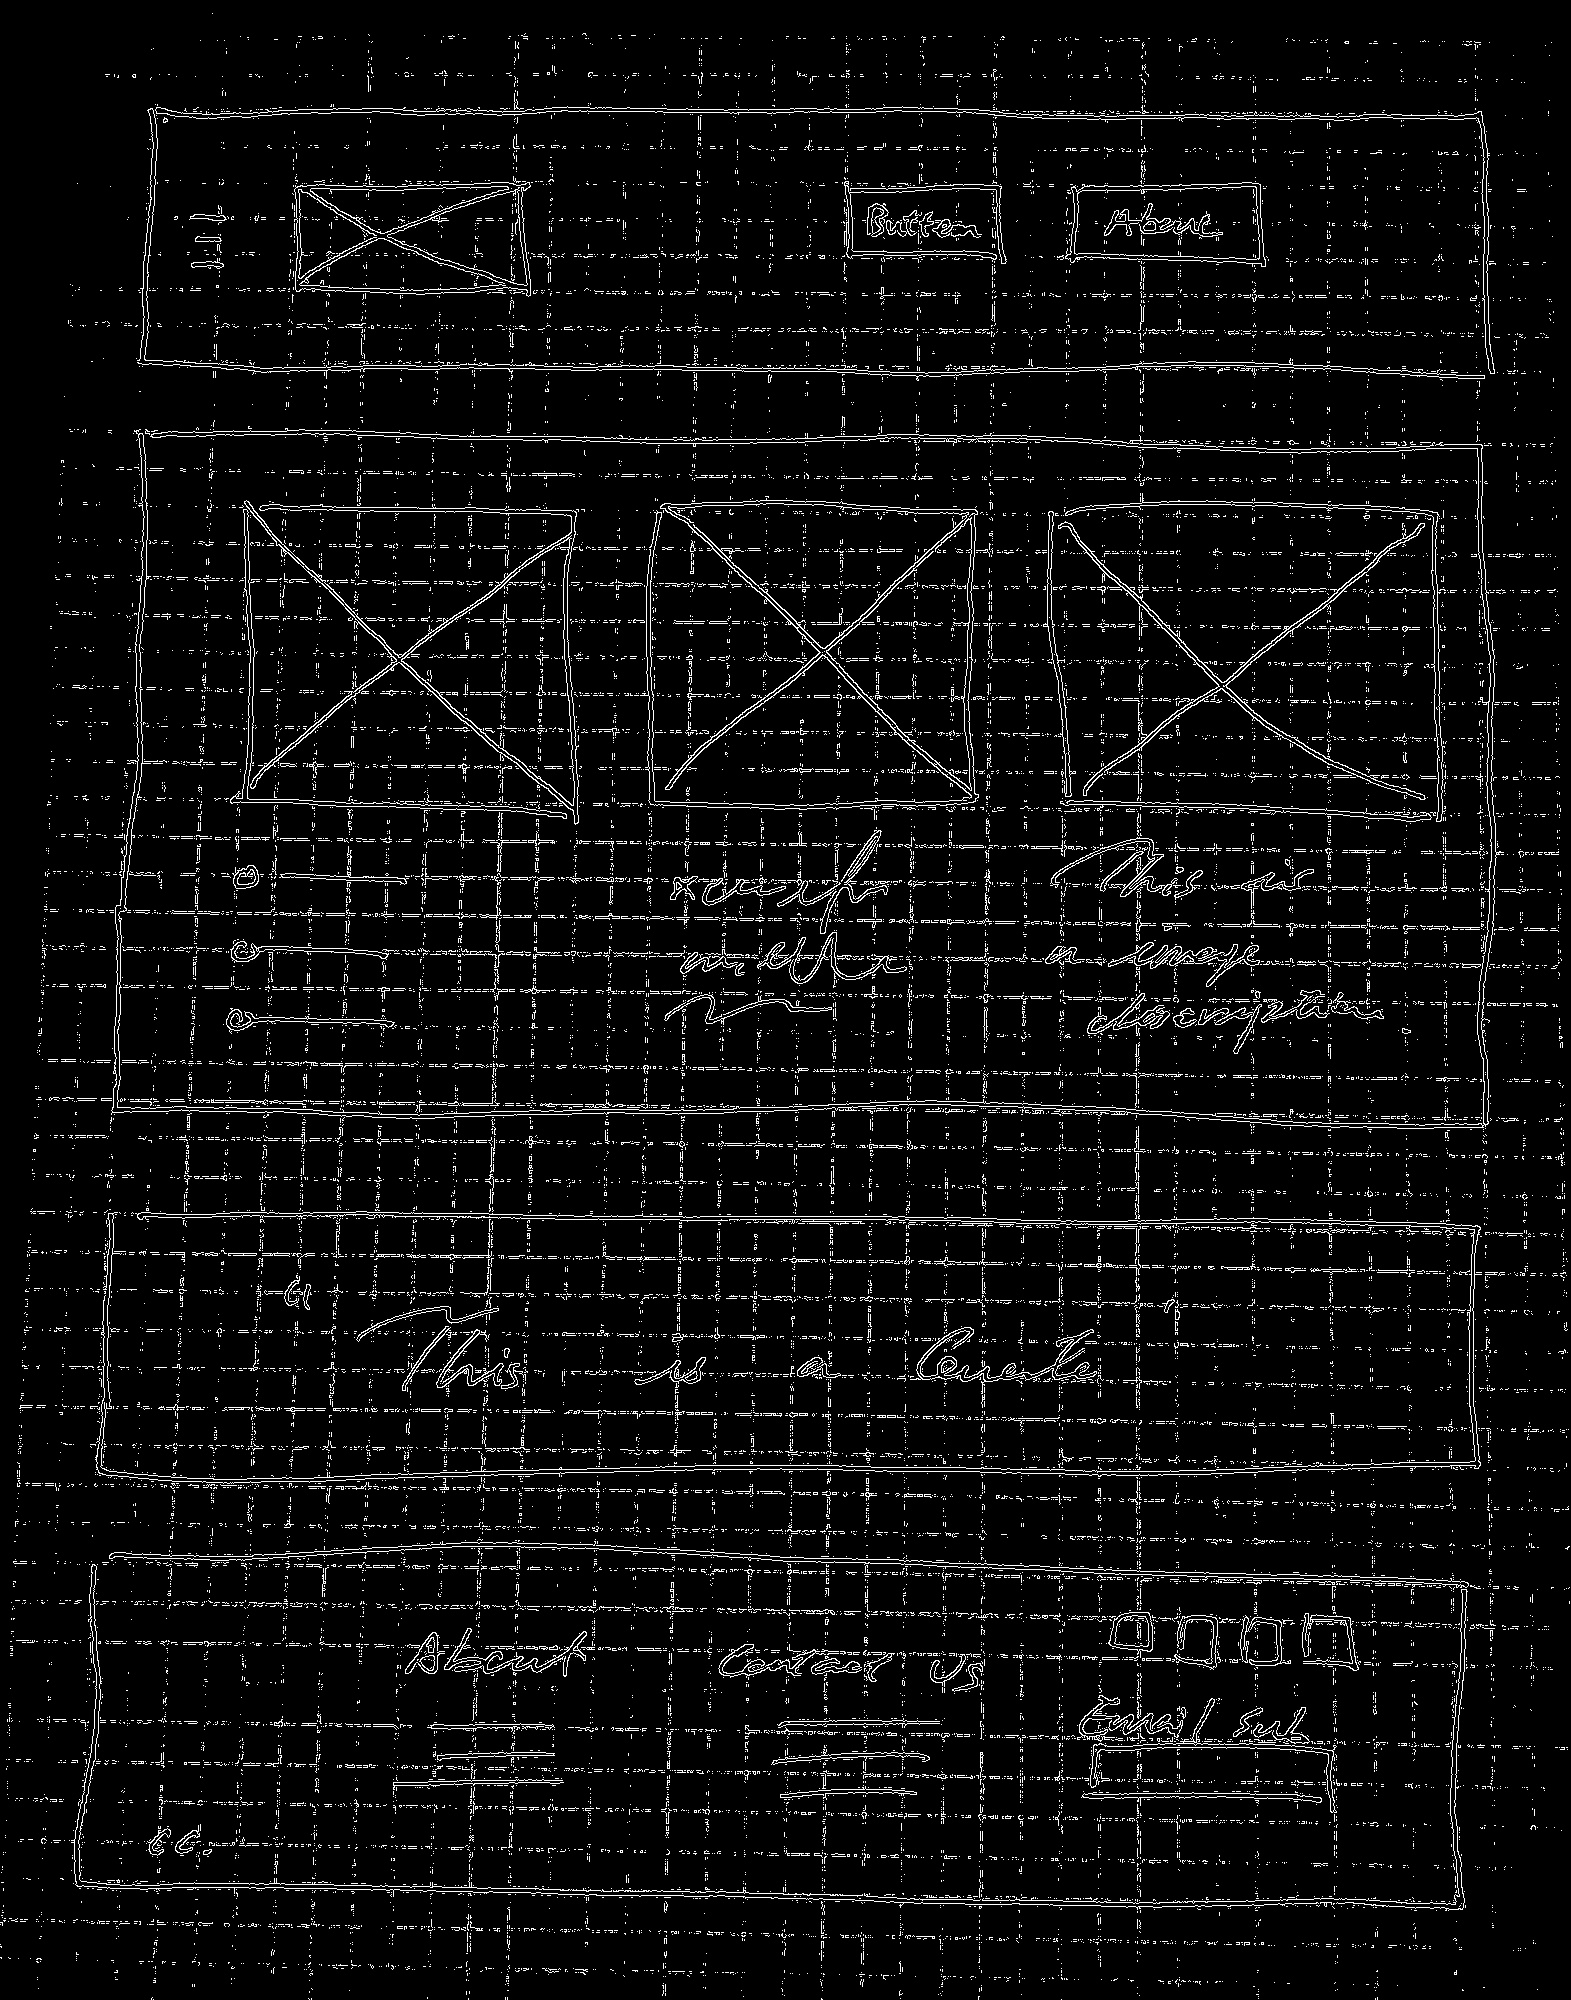 Button
About
This is
a image
description
" This is a Couate "
About
Contact us
Email sub
CC.